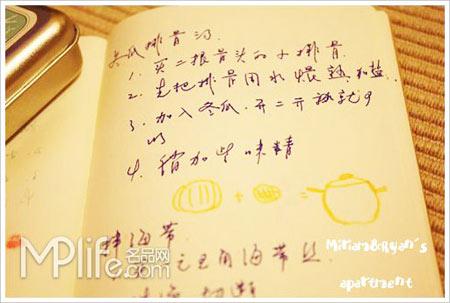 冬瓜排骨汤
1. 买二根骨头的小排骨
2. 先把排骨用水煨熟,加盐.
3. 加入冬瓜.开二开秒就可
以
4. 稍加些味精
拌海带
MPlife 名品网
.com
Miriam&Ryan's
apartment